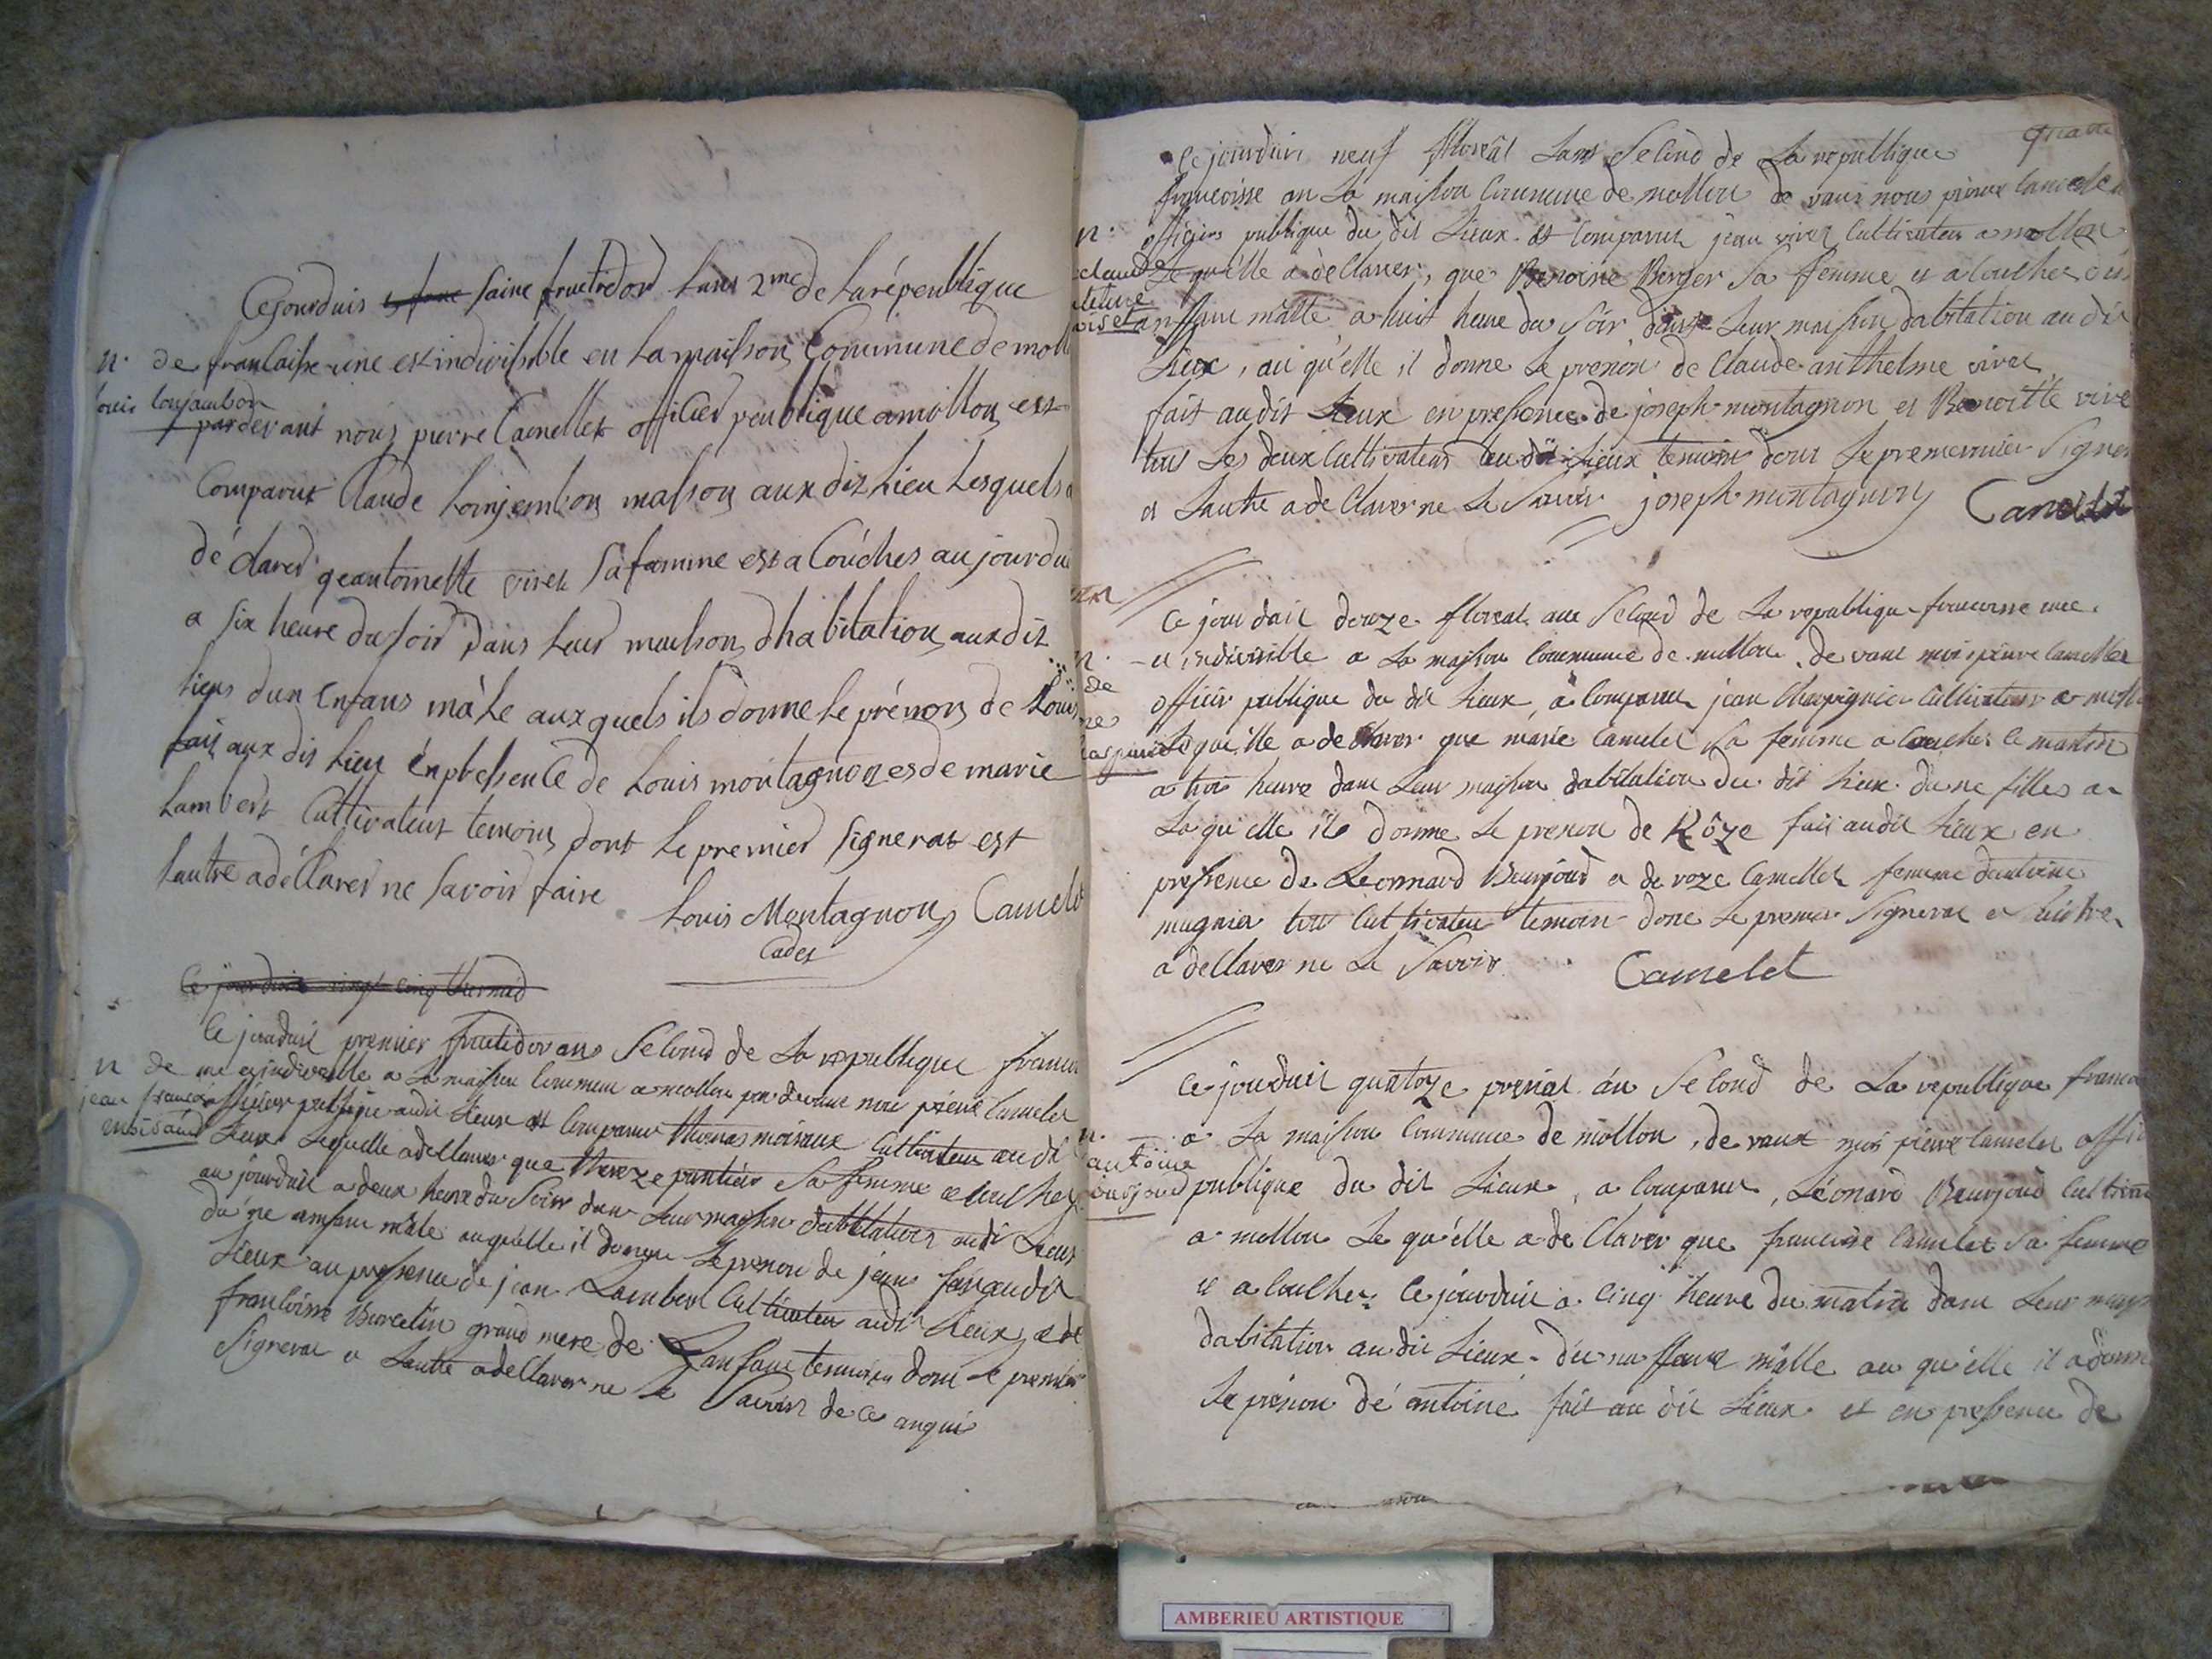 Cejourduis saine fructidor lans 2me de la répeublique
n. de francaisse une est indivisible en la maison Commune de moll
louis lonjambon
pardevant nous pierre Camellet officier peublique a mollon est
Comparut Claude Lonjembon masson aux dit Lieu Lesquels a
dé clarer qeantoinette viret sa famme est a Couches aujourdui
a Six heure du soir dans Leur maison dhabitation aux dit
Lieus dun Enfans mâle aux quels ils donne le prénom de Louis
fait aux dis Lieu En presence de Louis montagnon es de marie
Lambert Cultivateur temoins dont le premier Signerat est
Lautre a déClarer ne savoir faire Louis Montagnon Camelet
Cadet
Ce jourduis vingt cinq thermid
Ce jourduit premier fructidor ans Second de La republique francoi
n de une et indivisible a la maison Commune a mollon par devant nous pierre Camelet
jean francoi officier publique audit Lieux at Comparu thomas moiraux Cultivateur au dit
Lieux Lequelle a declarer que thereze Sa femme a Coucher
au jourduit a deux heure du Soir dans Leur maison dabitation audit Lieux
du ne anfant mâle auquelle il donne Le prenon de jean fait audit
Lieux an presence de jean Lambert Cultivateur audit Lieux a de
francoisse Burcelin grand mere de Lanfant temoin dont le premier
Signerat a Lautre a deClarer ne Le Savoir de ce anqui
quatre
Ce jourduis neuf floreal Lans Second de La republique
francoisse an La maison Commune de mollon de vans nous pierre Camelet
n. officier publique du dit Lieux at Comparut jean viret Cultivateur a mollon
claude Le quelle a déClarer, que Benoine Berger Sa femme et a Coucher dun
anffant mâlle a huit heure du Soir dans Leur maison dabitation au dit
Lieux, au qu'elle il donne Le prenon de Claude anthelme viret
fait au dit Lieux en presence de joseph montagnon et Benoitte vire
tous Les deux Cultivateur du dit Lieux temoin dont Le premernier Signer
et Lautre a de Claver ne Le Savoir joseph montagnon Camelet
Ce jourduit douze floreal an Second de La republique francoisse une
n. et indivisible a La maison Commune de mollon de vant moi pierre Camelet
de officier publique du dit Lieux, a Comparu jean Cultivateur a moll
Le que lle a de Claver que marie Camelet Sa femme a Coucher Ce matin
a troi heure dans Leur maison dabitation du dit Lieux du ne filles a
La qu'elle ils donne Le prenon de Rôze fait audit Lieux en
presence de Leonnard Beurjoud a de roze Camellet femme dantoine
mugnier tous Cultivateur temoin dont Le premier Signerat a Lautre
a deClaver ne Le Savoir Camelet
Ce jourduit quatoze prerial an Second de La republique franco
n. a La maison Commune de mollon, de vant moi pierre Camelet offic
antoine publique du dit Lieux, a Comparut, Léonard Beurjoud Cultiva
a mollon Le qu'elle a de Claver que francoise Camelet Sa femme
et a Coucher Ce jourduit a Cinq heure du matin dans Leur mays
dabitation au dit Lieux du na ffant mâlle au qu'elle il a donne
Le prenon dé antoine fait au dit Lieux et en presence de
AMBERIEU ARTISTIQUE